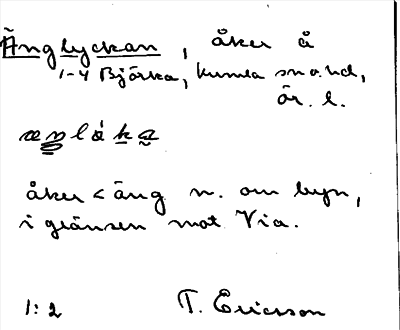 Änglyckan, åker å
1-4 Björka, Kumla sn o. hd,
ör. l.
åker < äng n. om byn,
i gränsen mot Via.
1:2 T. Ericsson